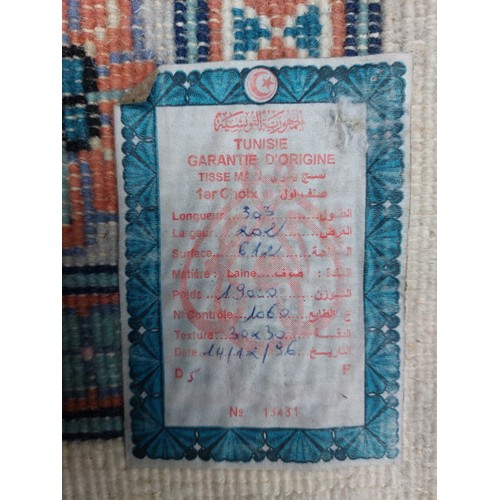 الجمهورية التونسية
TUNISIE
GARANTIE D'ORIGINE
TISSE MAIN نسج يدوي
1er Choix صنف أول
Longueur... 303 ...الطول
Largeur... 202 ...العرض
Surface... 612 ...المساحة
Matière: Laine...صوف :المادة
Poids... 19000 ...الوزن
N Contrôle... 1060 ...ع الطابع
Texture... 30x30
Date... 14/12/96 ...التاريخ
D 5
No 13431